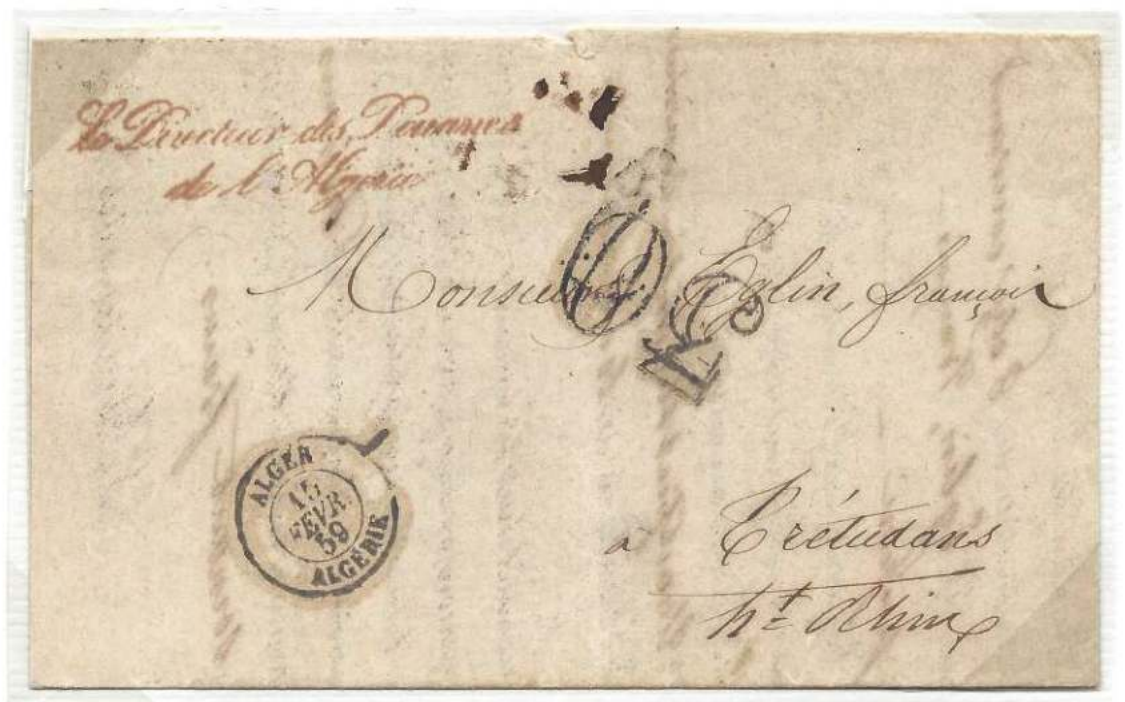 Le Directeur des Douanes
de l'Algérie
Monsieur Eglin, françois
ALGER
15
FEVR.
59
ALGÉRIE
a Trétudans
ht Rhin